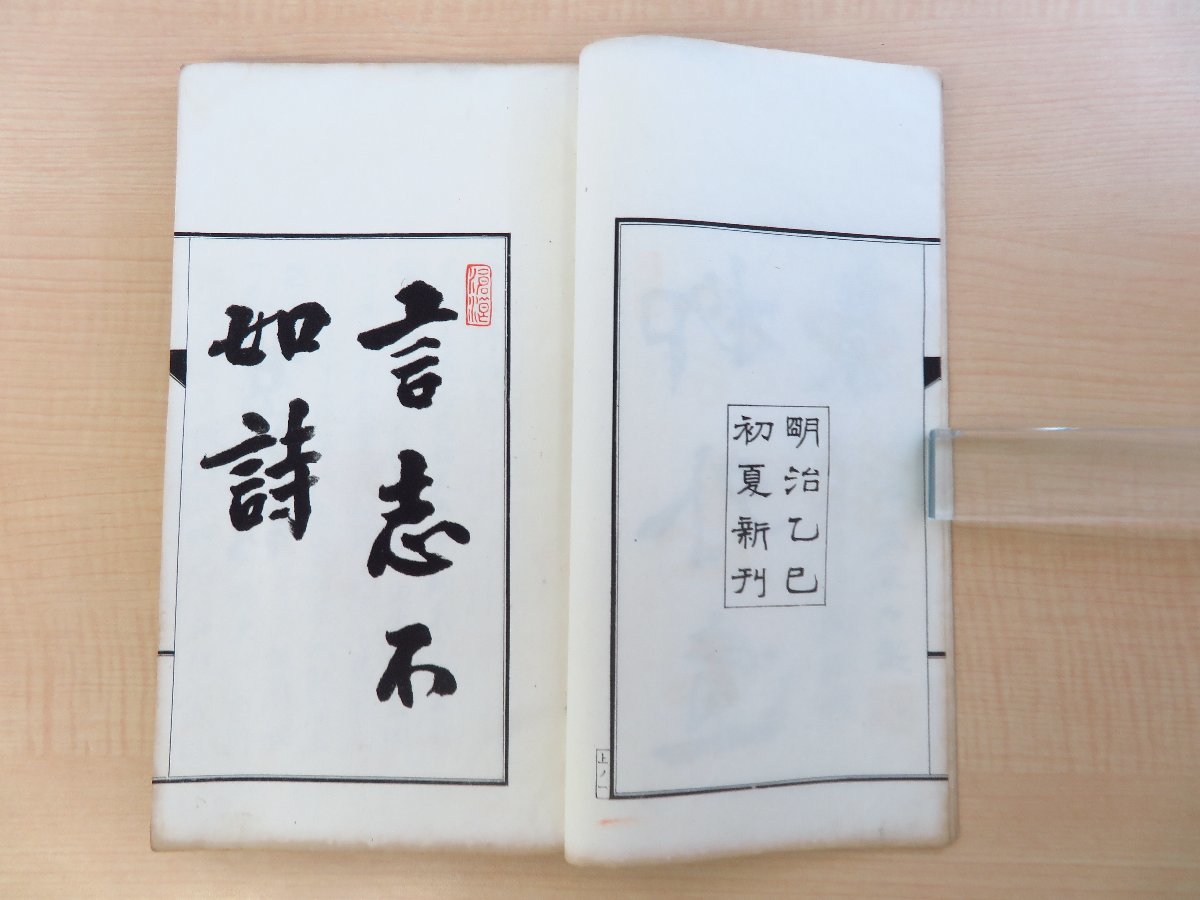 明治乙巳
初夏新刊
上ノ一
言志不
如詩